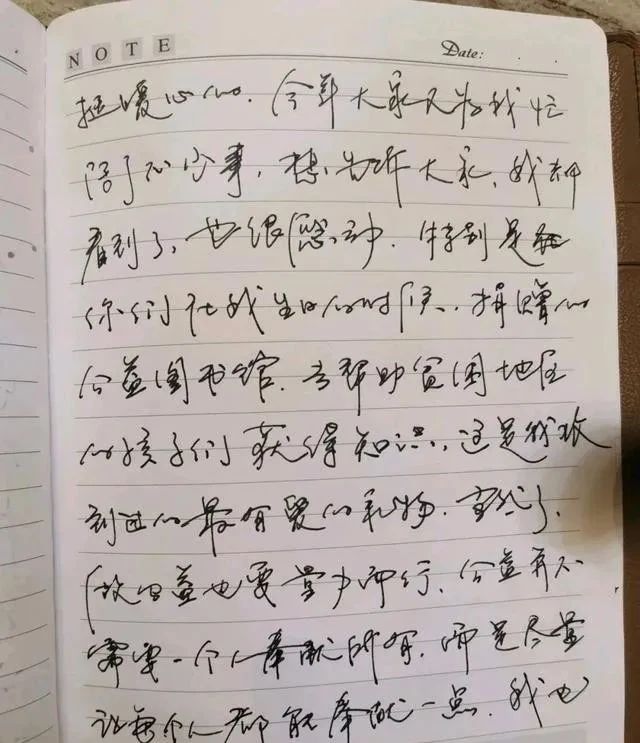 NOTE Date:
挺暖心的. 今年大家又为我忙
了不少事, 想告诉大家, 我都
看到了, 也很感动. 特别是
你们在我生日的时候, 捐赠的
公益图书馆. 去帮助贫困地区
的孩子们获得知识, 这是我收
到过的最有爱的礼物. 当然了,
做公益也要量力而行, 公益并不
需要一个人奉献所有, 而是尽量
让每个人都能奉献一点. 我也